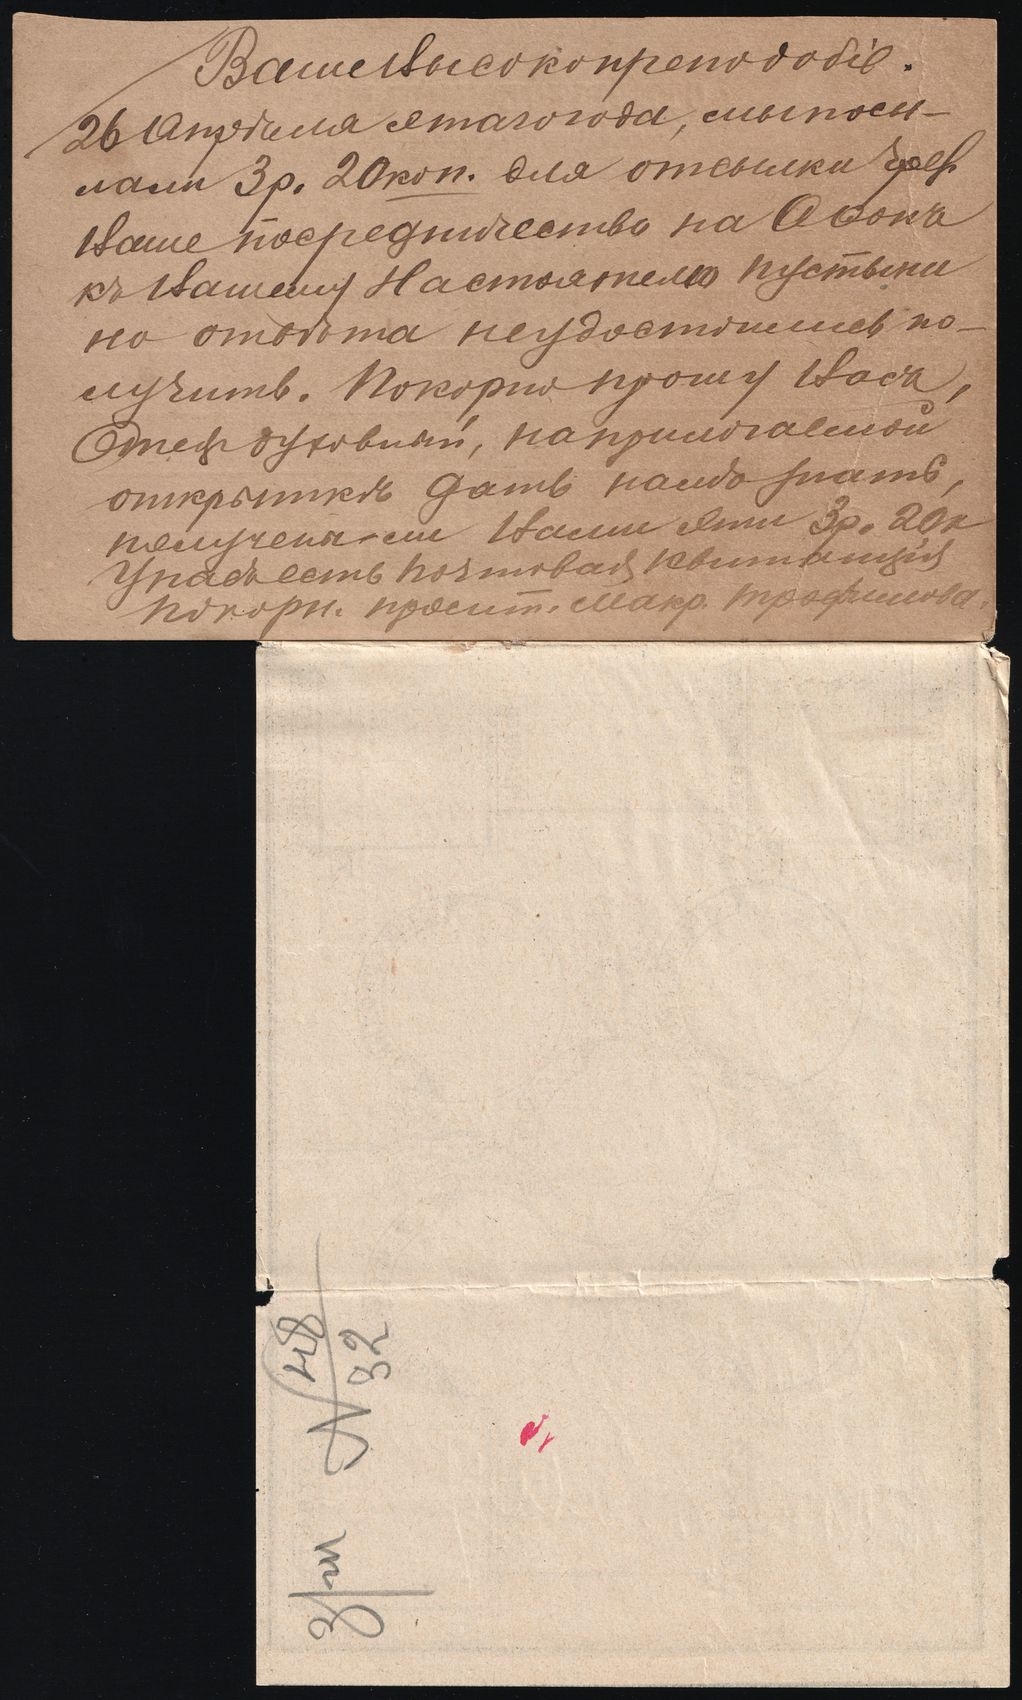 Ваше Высокопреподобіе.
26 Апрѣля этаго года, мы посы-
лали 3р. 20 коп. для отсылки чрез
Ваше посредничество на Афонъ
къ Вашему Настоятелю пустыни
но отвѣта неудостоились по-
лучить. Покорно прошу Васъ,
Отецъ духовный, на прилагаемой
открыткѣ дать намъ знать,
получены-ли Вами эти 3р. 20к
У насъ есть почтовая квитанція
Покорн. просит. Макр. Трофимова.
N 48
32